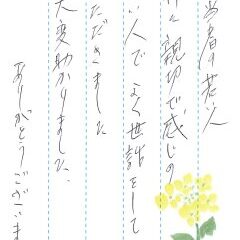 当者の若い人
に親切で感じの
い人でよく世話をして
ただきました
大変助かりました、
ありがとうございま